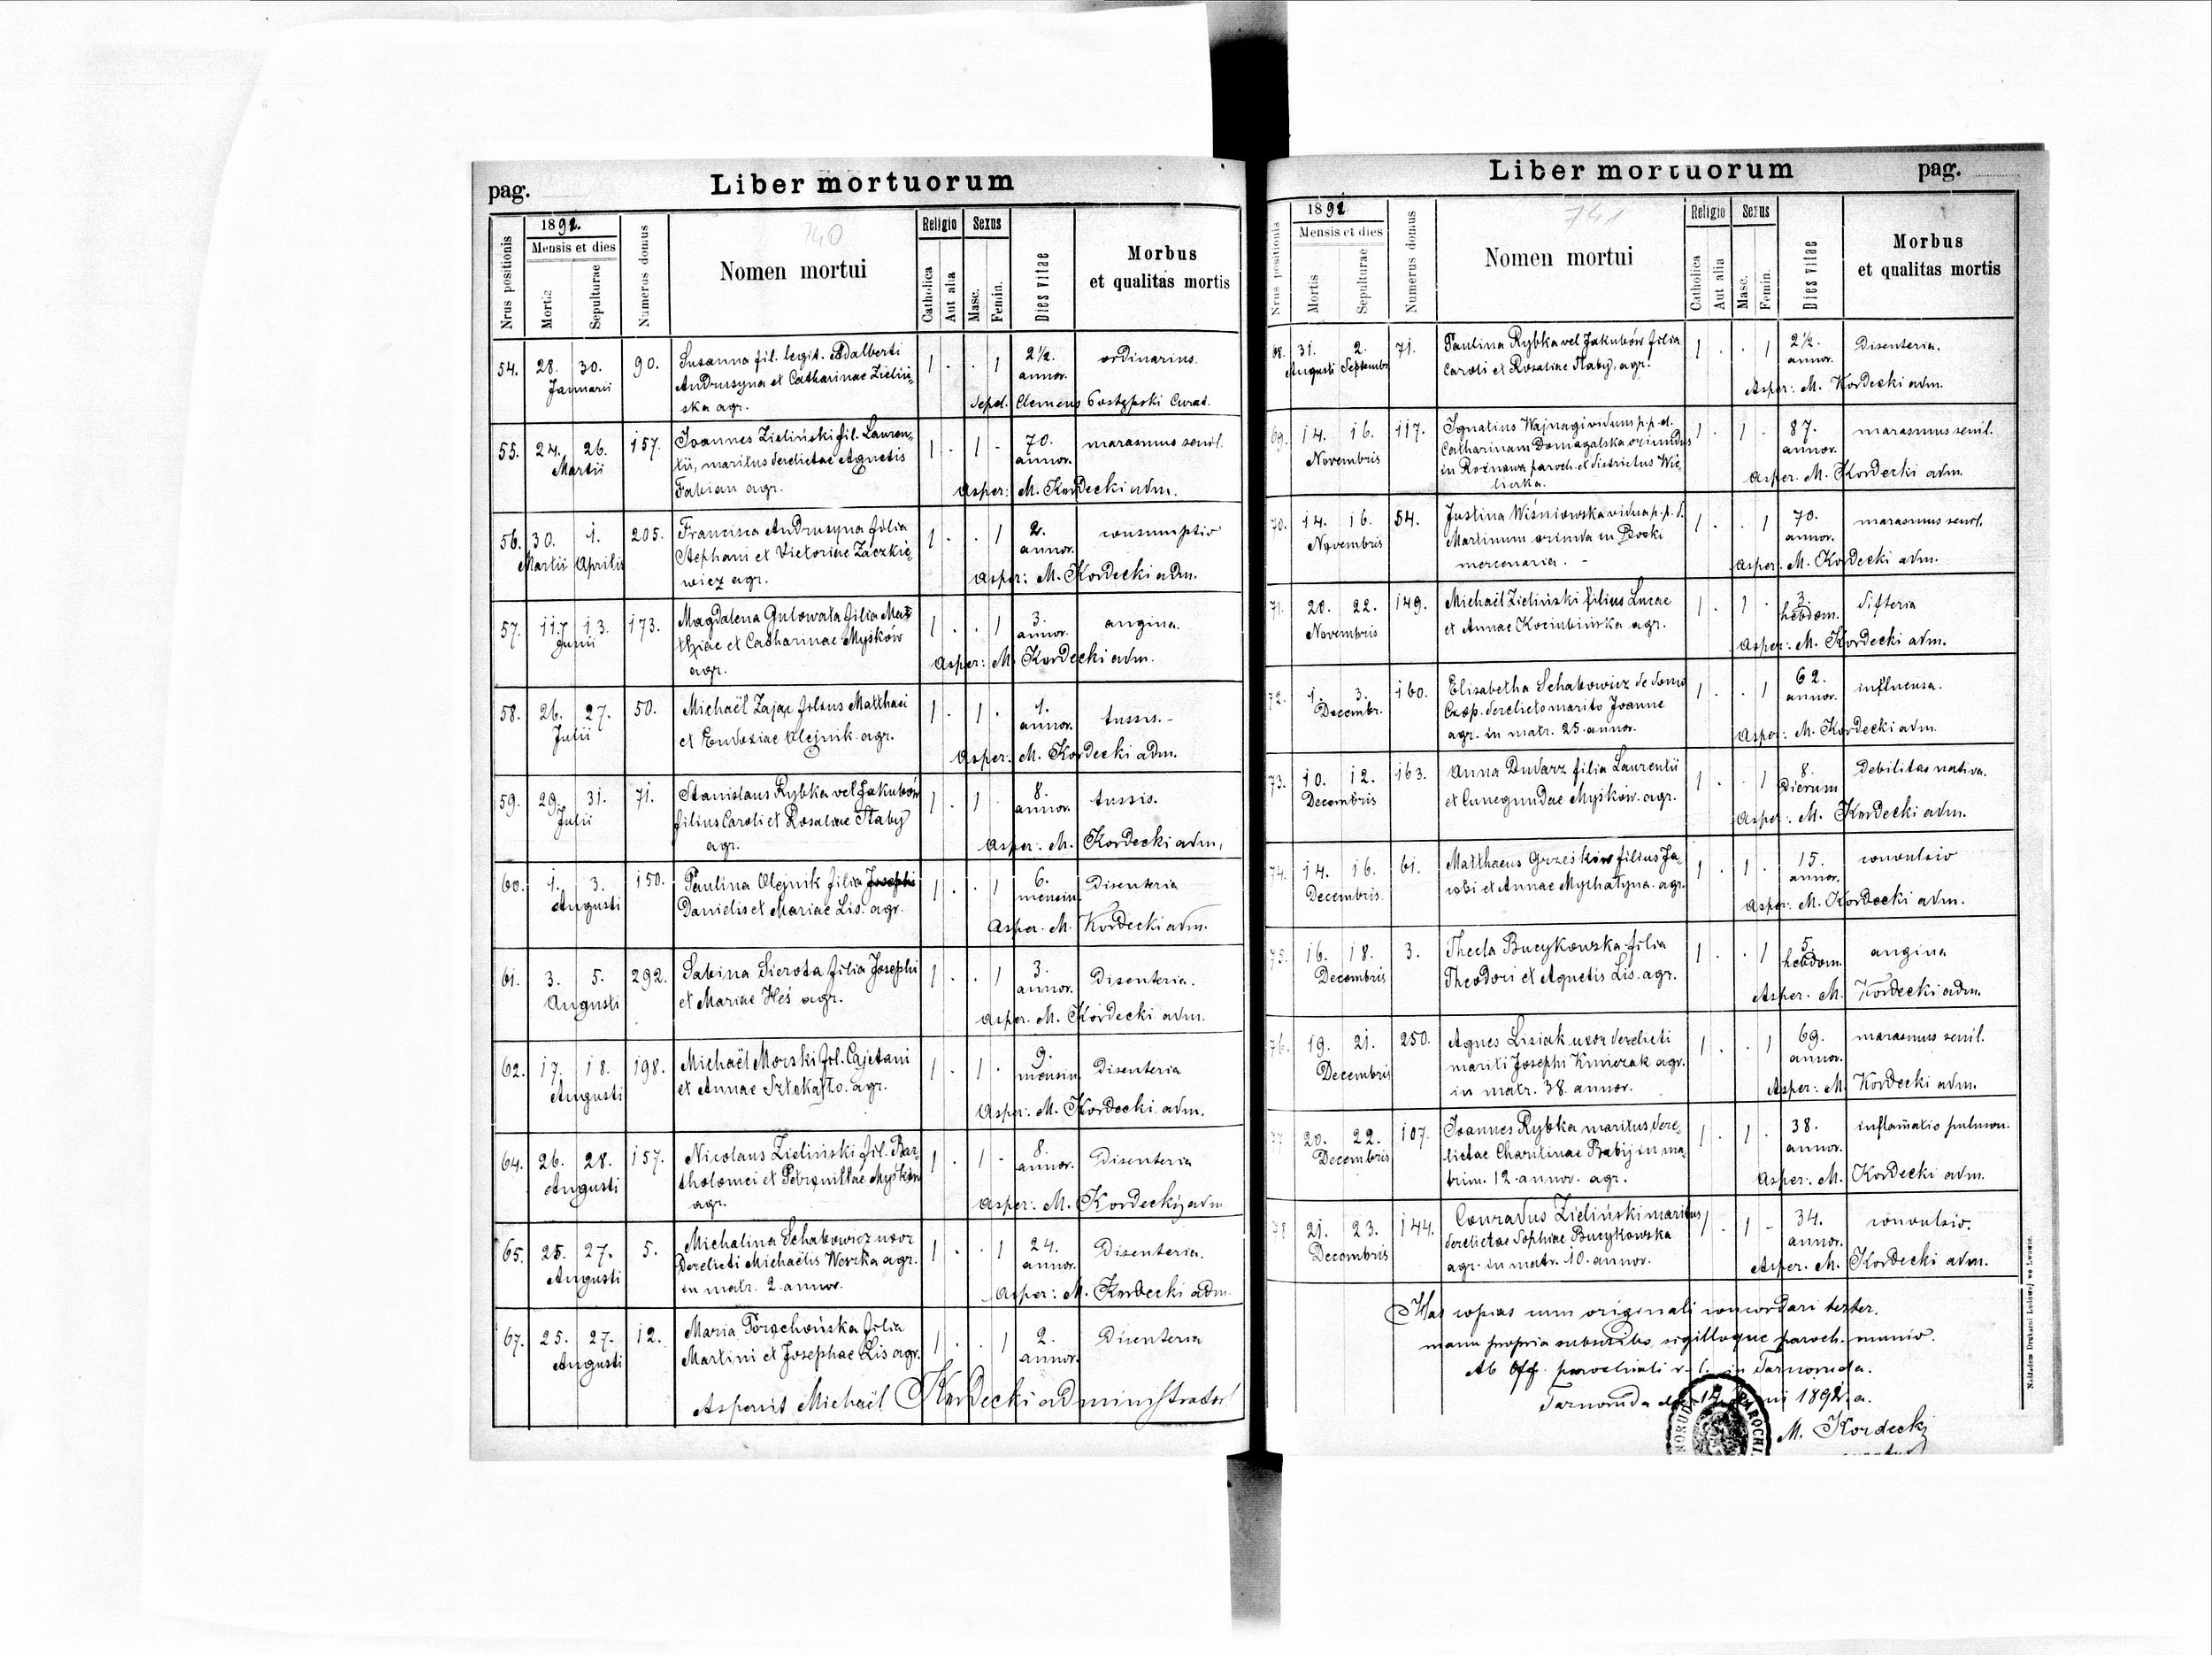 pag. Liber mortuorum
740
Nrus positionis
1892.
Mensis et dies
Mortis
Sepulturae
Numerus domus
Nomen mortui
Religio
Catholica
Aut alia
Sexus
Masc.
Femin.
Dies vitae
Morbus
et qualitas mortis
54. 28. 30. 90. Susanna fil. legit. Adalberti 1 . . 1 2½ ordinarius.
Januarii Andrusyna et Catharinae Zieliń annor.
ska agr. Sepel. Clemens Postępski Curat.
55. 24. 26. 157. Joannes Zieliński fil. Lauren, 1 . 1 - 70. marasmus senil.
Martii tii, maritus derelictae Agnetis annor.
Fabian agr. Asper: M. Kordecki adm.
56. 30. 1. 205. Francisca Andrusyna filia 1 . . 1 2. consumptio
Martii Aprilis Stephani et Victoriae Zaczkie, annor.
wicz agr. Asper: M. Kordecki adm.
57. 11. 13. 173. Magdalena Gulowata filia Mat 1 . . 1 3. angina.
Junii thiae et Catharinae Myśków annor.
agr. Asper: M. Kordecki adm.
58. 26. 27. 50. Michaël Zając filius Matthaei 1 . 1 . 1. tussis.-
Julii et Eudoxiae Olejnik agr. annor.
Asper: M. Kordecki adm.
59. 29. 31. 71. Stanislaus Rybka vel Jakubów 1 . 1 . 8. tussis.
Julii filius Caroli et Rosaliae Słaby annor.
agr. Asper: M. Kordecki adm,
60. 1. 3. 150. Paulina Olejnik filia Josephi 1 . . 1 6. Disenteria
Augusti Danielis et Mariae Lis. agr. mensiu.
Asper. M. Kordecki adm.
61. 3. 5. 292. Sabina Sierota filia Josephi 1 . . 1 3. Disenteria.
Augusti et Mariae Heś agr. annor.
Asper. M. Kordecki adm.
62. 17. 18. 198. Michaël Morski fil. Cajetani 1 . 1 . 9. Disenteria
Augusti et Annae agr. mensiu.
Asper: M. Kordecki adm.
64. 26. 28. 157. Nicolaus Zieliński fil. Bar, 1 . 1 - 8. Disenteria
Augusti tholomei et Petronillae Myśków annor.
agr. Asper: M. Kordecki adm
65. 25. 27. 5. Michalina Schabowicz uxor 1 . . 1 24. Disenteria.
Augusti Derelicti Michaëlis Werzka agr. annor.
in matr. 2. annor. Asper: M. Kordecki adm.
67. 25. 27. 12. Maria filia 1 . . 1 2. Disenteria
Augusti Martini et Josephae Lis agr. annor.
Aspersit Michaël Kordecki administrator
Liber mortuorum pag.
741
Nrus positionis
1892
Mensis et dies
Mortis
Sepulturae
Numerus domus
Nomen mortui
Religio
Catholica
Aut alia
Sexus
Masc.
Femin.
Dies vitae
Morbus
et qualitas mortis
68. 31. 2. 71. Paulina Rybka vel Jakubów filia 1 . . 1 2½. Disenteria.
Augusti Septembr Caroli et Rosaliae Słaby, agr. annor.
Asper: M. Kordecki adm.
69. 14. 16. 117. Ignatius Wajnagi viduus p. p. d. 1 . 1 . 87. marasmus senil.
Novembris Catharinam Domagalska oriundus annor.
in Rożnowa paroch. et districtus Wie,
liczka. Asper. M. Kordecki adm.
70. 14. 16. 54. Justina Wiśniowska vidua p. p. d. 1 . . 1 70. marasmus senil.
Novembris Martinum oriunda in annor.
mercenaria. - Asper. M. Kordecki adm.
71. 20. 22. 149. Michaël Zieliński filius Lucae 1 . 1 . 3. difteria
Novembris et Annae Kociubińska agr. hebdom.
Asper: M. Kordecki adm.
72. 1. 3. 160. Elisabetha Schabowicz de domo 1 . . 1 62. influensa.
Decembr. Czop. derelicto marito Joanne annor.
agr. in matr. 25. annor. Asper: M. Kordecki adm.
73. 10. 12. 163. Anna Dudarz filia Laurentii 1 . . 1 8. Debilitas nativa.
Decembris et Cunegundae Myśków. agr. Dierum
Asper: M. Kordecki adm.
74. 14. 16. 61. Matthaeus Grześków filius Ja, 1 . 1 . 15. convulsio
Decembris. cobi et Annae Mychałyna. agr. annor.
Asper: M. Kordecki adm.
75. 16. 18. 3. Thecla Bucykowska filia 1 . . 1 5. angina
Decembris Theodori et Agnetis Lis. agr. hebdom.
Asper. M. Kordecki adm.
76. 19. 21. 250. Agnes Lisiak uxor derelicti 1 . . 1 69. marasmus senil.
Decembris mariti Josephi Kmiczak agr. annor.
in matr. 38. annor. Asper: M. Kordecki adm.
77 20. 22. 107. Joannes Rybka maritus dere, 1 . 1 . 38. inflamatio pulmon.
Decembris lictae Charitinae Babij in ma, annor.
trim. 12. annor. agr. Asper: M. Kordecki adm.
78 21. 23. 144. Conradus Zieliński maritus 1 . 1 - 34. convulsio.
Decembris derelictae Sophiae Bucykowska annor.
agr. in matr. 10. annor. Asper. M. Kordecki adm.
Has copias cum originali concordari testor.
manu propria subscribo, sigilloque paroch. munio.
Ab Off. parochiali r. l. in Tarnoruda.
Tarnoruda 1892. a.
M. Kordecki
Nakładem Drukarni Ludowej we Lwowie.